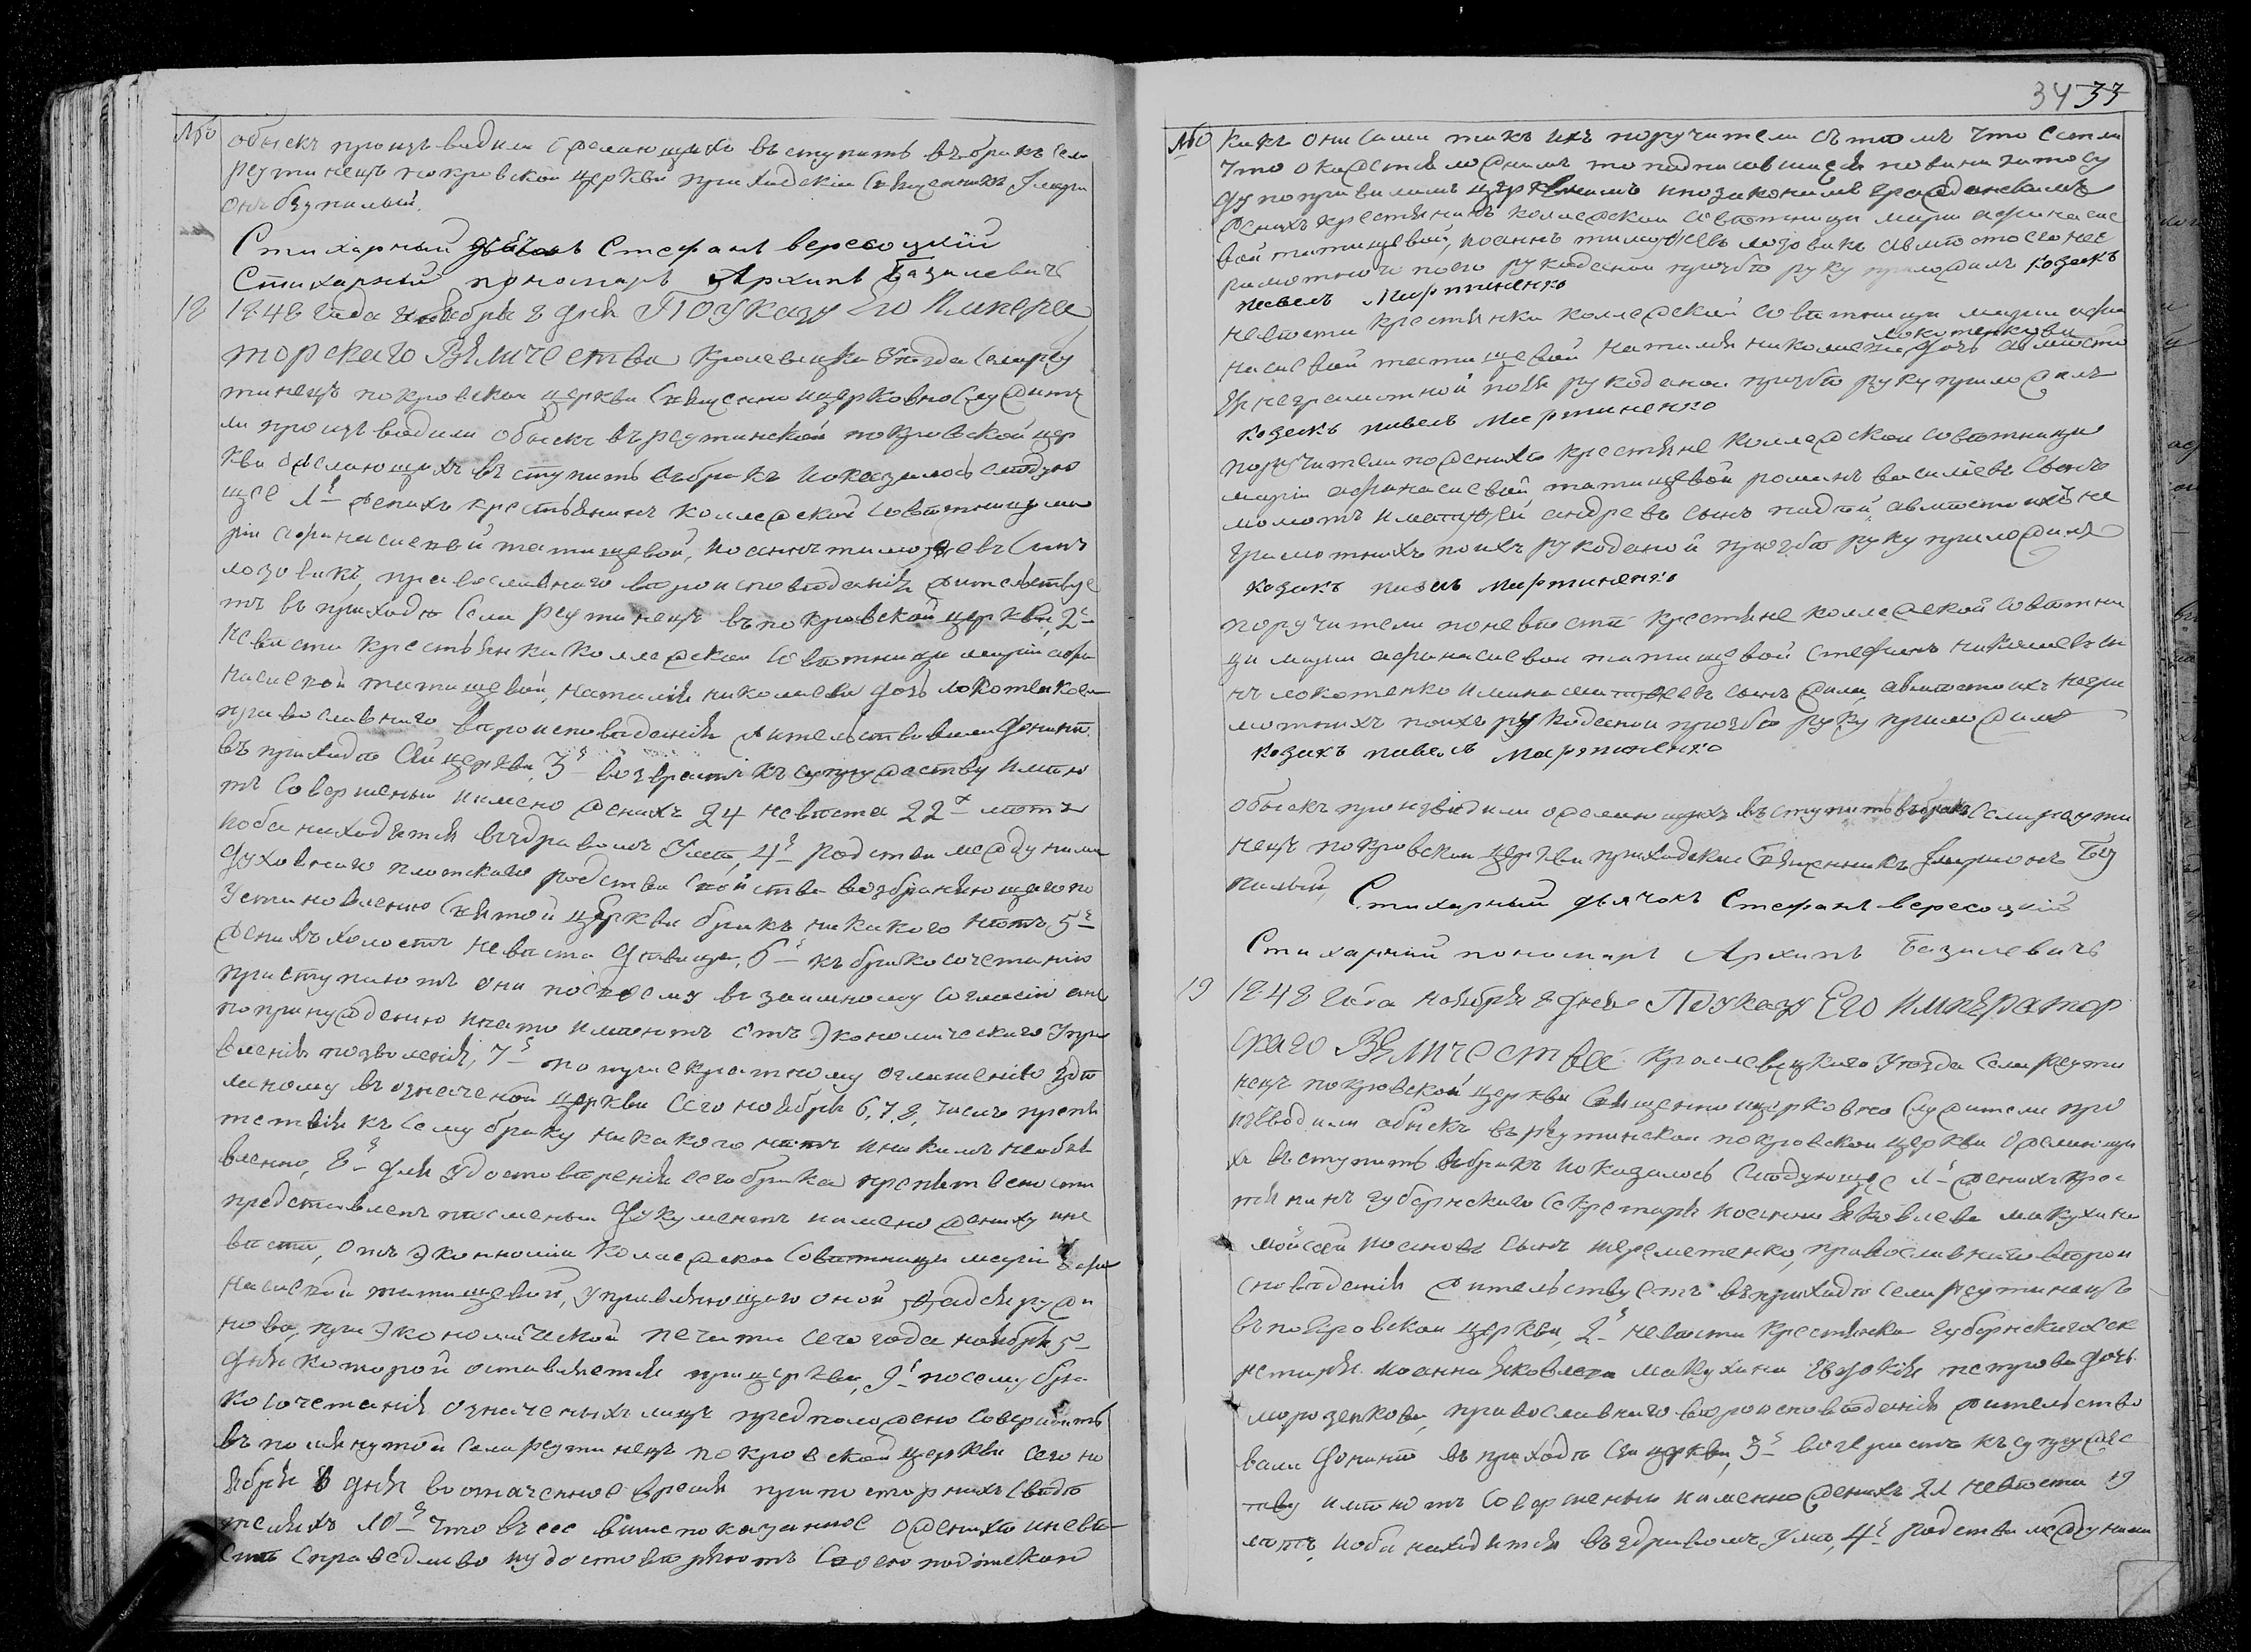 №
обыскъ производили о желающихъ въступить въ бракъ села
реутинецъ покровской церкви приходскій Священникъ
Стихарный дьячокъ Стефанъ вересоцкій
Стихарный пономарь Архипъ Базилевичъ
18 1848 года ноября 8 дня ПОУказу Его Импера
торскаго Величества кролевецкаго уѣзда села реу
тинецъ покровской церкви Священно и церковно Служите
ли производили обыскъ въ реутинской покровской цер
кви о желающихъ въступить въ бракъ и оказалось слѣдую
щее 1е женихъ крестьянинъ колежской совѣтницы ма
ріи афанасиевой татищевой, иоаннъ тимофеевъ Сынъ
лозовикъ, православнаго вѣроисповѣданія жительствуе
тъ въ приходѣ села реутинецъ въ покровской церкви, 2е
невеста крестьянка колежской совѣтницы маріи афа
насиевой татищевой, наталія николаева дочь локотенкова
православнаго вѣроисповѣданія жительствовала донынѣ
въ приходѣ Сей церкви, 3е возврастъ къ супружаству имѣю
тъ совершеный имено женихъ 24 невѣста 22х лѣтъ
иоба находятся въ здравомъ умѣ, 4е родства между ними
духовнаго плотскаго родства свойства возбраняющаго по
установлению святой церкви бракъ никакого нѣтъ, 5е
женихъ холостъ невѣста дѣвица, 6е къ бракосочетанію
приступаютъ они посвоему взаимному согласію а не
по принуждению и нато имѣютъ отъ Экономическаго Упра
вленія позволенія, 7е по троекратному оглашению здѣ
ланому въ означеной церкви сего ноября 6, 7, 8, числъ препя
тствія къ сему браку никакого нѣтъ и никимъ необъяв
влено, 8е для удостовѣренія сего брака препятвености
представленъ писменый документъ имено жениху и не
вѣсти, отъ экономіи колежской Совѣтницы маріи афа
насиевой татищевой, управляющаго оной
нова, при экономической печати сего года ноября 5
дня которой оставляется при церкви, 9е посему бра
косочетанія означеныхъ лицъ предположено совершить
въ помянутой села реутинецъ покровской церкви сего но
ября 8 дня воозначенное время при по сторнихъ Свидѣ
теляхъ 10е что въ сее више показанное о женихѣ и невѣ
стѣ справедливо и удостовѣряютъ Своею подпискою
34 33
№ какъ они сами такъ ихъ поручители сътемъ что если
что окажется ложнимъ то подписавшися повини за то су
ду по правиламъ церквнимъ и по законамъ гражданскимъ
женихъ крестьянинъ колежской совѣтници маріи афанасие
вой татищевой, иоаннъ тимофеевъ лозовикъ авмѣсто его не
рамотного поего рукоданой прозьбѣ руку приложилъ козакъ
павелъ Мартиненко
невѣста крестьянка колежской совѣтници маріи афа
локотенкова
насиевой татищевой наталія николаева дочь авмѣсто
ея неграмотной по ея рукоданой прозьбѣ руку приложилъ
козакъ павелъ Мартиненко
поручители по женихѣ крестьяне колежской совѣтници
маріи афанасиевой татищевой романъ василіевъ Сынъ
момотъ и матфей андреевъ сынъ авмѣсто ихъ не
грамотнихъ поихъ рукоданой прозьбѣ руку приложилъ
козакъ павелъ Мартиненко
поручители по невѣсте крестьяне колежской совѣтни
ци маріи афанасиевой татищевой Стефанъ николаевъ сы
нъ локотенко и сынъ авмѣсто ихъ негра
мотнихъ поихъ рукоданой прозьбѣ руку приложилъ
козакъ павелъ мартиненко
обыскъ производили о желающихъ въступить въ бракъ села реути
нецъ покровской церкви приходской Священникъ
Стихарный дьячокъ Стефанъ вересоцкій
Стихарний пономарь Архипъ Базилевичъ
19 1848 года ноября 8 дня ПоУказу Его Император
скаго Величества кролевецкаго Уѣзда села реути
нецъ покровской церкви священно и церковно Служители про
изводили обыскъ въ реутинской покровской церкви о желающи
хъ въступить въ бракъ и оказалось слѣдующее 1е женихъ крес
тянинъ губернскаго секретаря иоанна яковлева макухина
мойсей иоановъ сынъ шереметенко, православнаго вѣрои
сповѣданія жительствуетъ въ приходѣ села реутинецъ
въ покровской церкви, 2е невѣста крестянка губернскаго сек
ретаря иоанна яковлева макухина евдокія петрова дочь
морозенкова, православнаго вѣроисповѣданія жительство
вала донынѣ въ приходѣ сей церкви, 3е возврастъ къ супружес
тву имѣютъ совершеный именно женихъ 21 невѣста 19
лѣтъ, иоба находятся въ здравомъ умѣ, 4е родства между ними